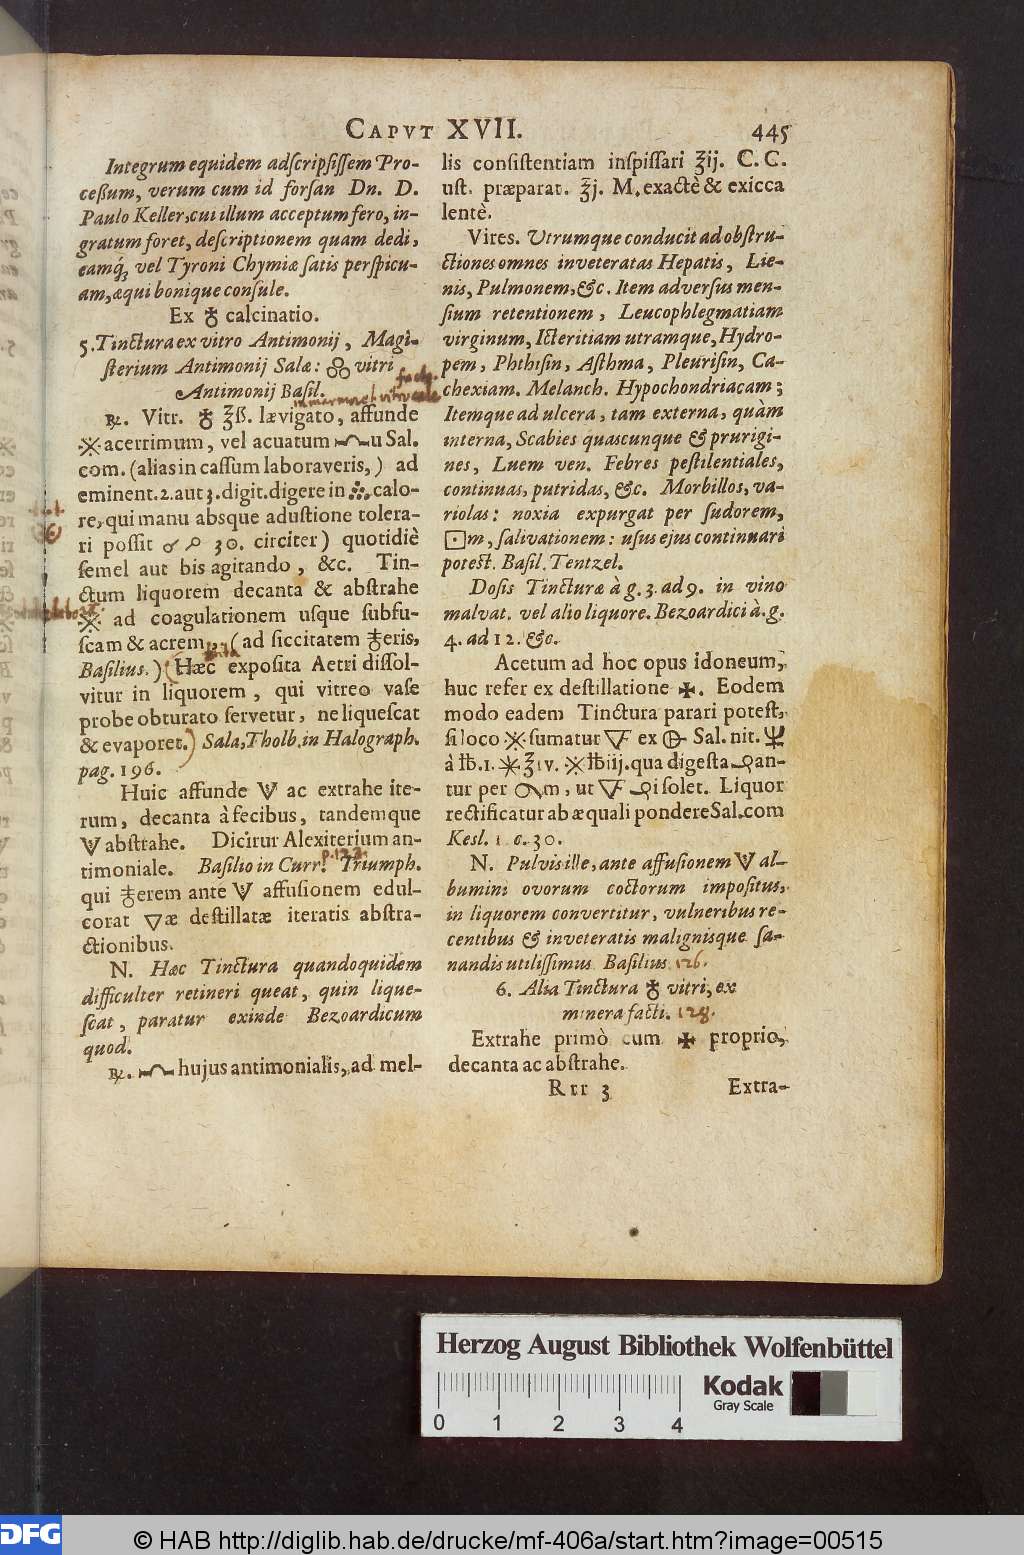 CAPVT XVII.
445
Integrum equidem adscripsissem Pro-
ceßum, verum cum id forsan Dn. D.
Paulo Keller, cui illum acceptum fero, in-
gratum foret, descriptionem quam dedi,
eamq́ꝫ vel Tyroni Chymiæ satis perspicu-
am, æqui bonique consule.
Ex ♁ calcinatio.
5. Tinctura ex vitro Antimonij, Magi-
sterium Antimonij Salæ: vitri
Antimonij Basil.
℞. Vitr. ♁ ℥ß. lævigato, affunde
acerrimum, vel acuatum u Sal.
com. (alias in cassum laboraveris,) ad
eminent. 2. aut 3. digit. digere in calo-
re, qui manu absque adustione tolera-
ri possit 30. circiter) quotidiè
semel aut bis agitando, &c. Tin-
ctum liquorem decanta & abstrahe
ad coagulationem usque subfu-
scam & acrem, (ad siccitatem eris,
Basilius.) (Hæc exposita Aetri dissol-
vitur in liquorem, qui vitreo vase
probe obturato servetur, ne liquescat
& evaporet.) Sala, Tholb. in Halograph.
pag. 196.
Huic affunde ac extrahe ite-
rum, decanta à fecibus, tandemque
abstrahe. Dicitur Alexiterium an-
timoniale. Basilio in Curr. Triumph.
qui erem ante affusionem edul-
corat æ destillatæ iteratis abstra-
ctionibus.
N. Hæc Tinctura quandoquidem
difficulter retineri queat, quin lique-
scat, paratur exinde Bezoardicum
quod.
℞. hujus antimonialis, ad mel-
lis consistentiam inspissari ℥ij. C. C.
ust. præparat. ℥j. M. exactè & exicca
lentè.
Vires. Utrumque conducit ad obstru-
ctiones omnes inveteratas Hepatis, Lie-
nis, Pulmonem, &c. Item adversus men-
sium retentionem, Leucophlegmatiam
virginum, Icteritiam utramque, Hydro-
pem, Phthisin, Asthma, Pleurisin, Ca-
chexiam. Melanch. Hypochondriacam;
Itemque ad ulcera, tam externa, quàm
interna, Scabies quascunque & prurigi-
nes, Luem ven. Febres pestilentiales,
continuas, putridas, &c. Morbillos, va-
riolas: noxia expurgat per sudorem,
⊡m, salivationem: usus ejus continuari
potest. Basil. Tentzel.
Dosis Tincturæ à g. 3. ad 9. in vino
malvat. vel alio liquore. Bezoardici à. g.
4. ad 12. &c.
Acetum ad hoc opus idoneum,
huc refer ex destillatione ✠. Eodem
modo eadem Tinctura parari potest,
si loco sumatur ex Sal. nit.
à ℔.1. ℥iv. ℔iij. qua digesta an-
tur per m, ut isolet. Liquor
rectificatur ab æquali pondere Sal. com
Kesl. 1 c. 30.
N. Pulvis ille, ante affusionem al-
bumini ovorum coctorum impositus,
in liquorem convertitur, vulneribus re-
centibus & inveteratis malignisque sa-
nandis utilissimus Basilius 126.
6. Alia Tinctura ♁ vitri, ex
minera facti. 128.
Extrahe primò cum ✠ proprio,
decanta ac abstrahe.
Rrr 3
Extra-
Herzog August Bibliothek Wolfenbüttel
0 1 2 3 4
Kodak
Gray Scale
DFG
© HAB http://diglib.hab.de/drucke/mf-406a/start.htm?image=00515